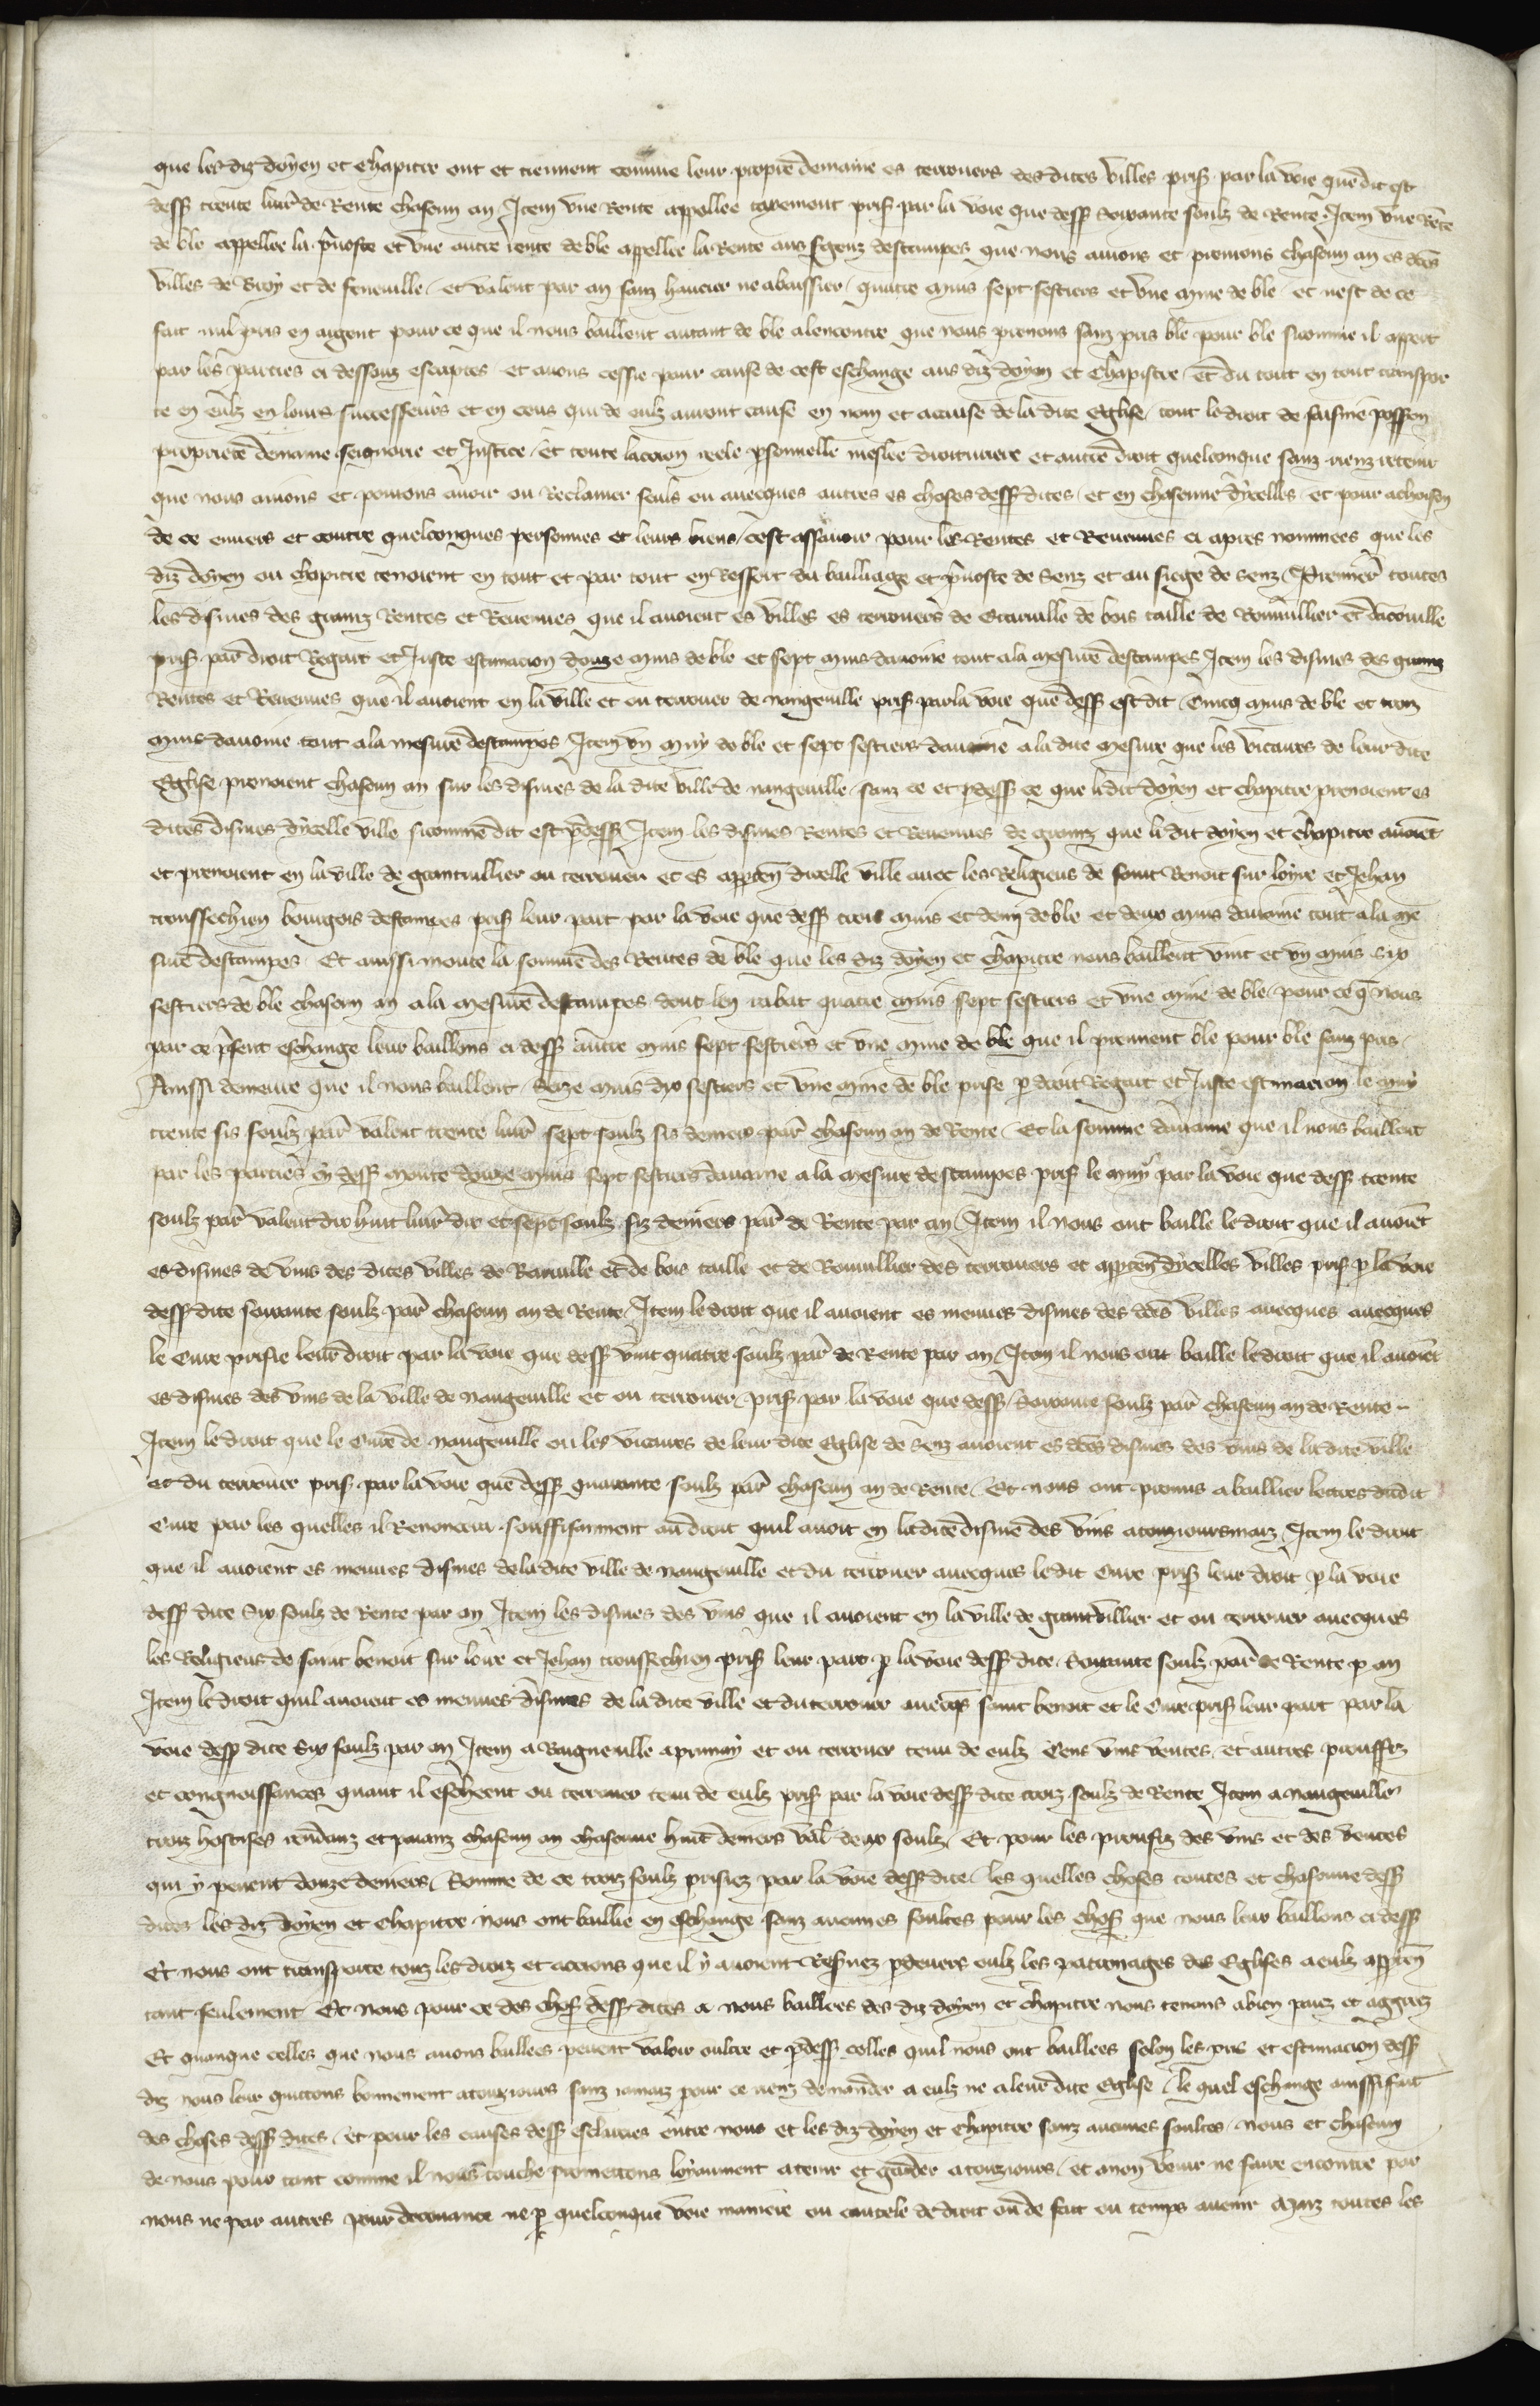 que les diz doyen et chapitre ont et tiennent comme leur propre demaine es terrouers des dites villes pris. par la voie que dit est
dess trente livr de Rente chascun an Item une Rente appellee tavemont pris par la voie que dess soixante soulz de Rente. Item une Rete
de ble appellee la pvoste et une autre rente de ble appellee la Rente aus sgenz destampes que nous avions et prenions chascun an es dces
villes de Broy et de feneuille et valent par an sanz haucier ne abaissier quatre muis sept sestiers et vne mine de ble et nest de ce
fait nul pris en argent pour ce que il nous baillent autant de ble alencontre que nous prenons sanz pris ble pour ble sicomme il appert
par les parties ci dessouz escriptes et avons cessie pour cause de cest eschange aus diz doyen et chapistre et du tout en tout transpor
te en eulz en leurs successeurs et en ceus qui de eulz auront cause en nom et acause de la dite Eglise tout le droit de saisine possion
propriete demaine seignorie et Justice et toute laccion reele psonnelle meslee droituriere et autre droit quelconque sanz rienz retenir
que nous avions et povions avoir ou Reclamer seuls ou avecques autres es choses dess dites et en chascune dycelles et pour achoison
de ce envers et contre quelconques personnes et leurs biens cest assavoir pour les Rentes et Revenues ci apres nommees que les
diz doyen ou chapitre tenoient en tout et par tout en Ressort du bailliage et pvoste de Senz et au siege de Senz Premier toutes
les dismes des grainz Rentes et Revenues que il avoient es villes es terrouers de Ecrauille de bois taille de Rouuillier et dacouille
pris par droit Regart et Juste estimacion douze muis de ble et sept muis davoine tout ala mesure destampes Item les dismes des grainz
Rentes et Revenues que il avoient en la ville et ou terrouer de nangeuille pris par la voie que dess est dit Cincq muis de ble et trois
muis davoine tout a la mesure destampes Item vn muy de ble et sept sestiers davoine a la dite mesure que les vicaires de leur dite
Eglise prenoient chascun an sur les dismes de la dite ville de nangeuille sanz ce et pdess ce que ledit doyen et chapitre prenoient es
dites dismes dycelle ville sicomme dit est pdess Item les dismes Rentes et Revenues de grainz que le dit doyen et chapitre avoiet
et prenoient en la ville de grantuillier ou terrouer et es apparten dicelle ville avec les Religieus de saint Benoit sur loyre et Jehan
troussechien bourgois destampes pris leur part par la voie que dess trois muis et demi de ble et deux muis davoine tout a la me
sure destampes Et aussi monte la somme des Rentes de ble que les diz doyen et chapitre nous baillent vint et vn muis six
sestiers de ble chascun an a la mesure destampes dont len rabat quatre muis sept sestiers et vne mine de ble pour ce q nous
par ce psent eschange leur baillons ci dess autre muis sept sestiers et vne mine de ble que il prennent ble pour ble sanz pris
Aussi demeure que il nous baillent Seize muis dix sestiers et vne mine de ble prise p droit Regart et Juste estimacion le muy
trente sis soulz par valent trente livr sept soulz sis deniers par chascun an de Rente Et la somme davoine que il nous baillent
par les parties cy dess monte douze muis sept sestiers davoine a la mesure destampes pris le muy par la voie que dess trente
soulz par valent dix huit livr dix et sept soulz siz deniers par de Rente par an Item il nous ont baille le droit que il avoiet
es dismes de vins des dites villes de Ecrauille et de bois taille et de Rouuillier des terrouers et appten dycelles villes pris p la voie
dess dite soixante soulz par chascun an de Rente Item le droit que il avoient es menues dismes des dces villes avecques avecques
le Cure prisie leur droit par la voie que dess vint quatre soulz par de Rente par an Item il nous ont baille le droit que il avoiet
es dismes des vins de la ville de nangeuille et ou terrouer pris par la voie que dess Soixante soulz par chascun an de Rente
Item le droit que le Cure de nangeuille ou les vicaires de leur dite Eglise de Senz avoient es dces dismes des vins de ladite ville
et du terrouer pris par la voie que dess quarante soulz par chascun an de Rente Et nous ont promis a baillier lectres dudit
Cure par les quelles il Renoncera souffisamment au droit quil avoit en ladite disme des vins atouzioursmaiz Item le droit
que il avoient es menues dismes de ladite ville de nangeuille et du terrouer avecques ledit Cure pris leur droit p la voie
dess dite Six soulz de Rente par an Item les dismes des vins que il avoient en la ville de grantvillier et ou terrouer avecques
les Religieus de saint benoit sur loire et Jehan troussechien pris leur part p la voie dess dite Soixante soulz par de Rente p an
Item le droit quil avoient es menues dismes de la dite ville et du terrouer avecqs saint benoit et le Cure pris leur part par la
voie dess dite Six soulz par an Item a Baigneulle apruuay et ou terrouer tenu de eulz Cens vins ventes et autres prouffiz
et congnoissances quant il escheent ou terrouer tenu de eulz pris par la voie dess dite troiz soulz de Rente Item a nangeuille
troiz hostises rendanz et paianz chascun an chascune huit deniers val deux soulz Et pour les proufiz des vins et des ventes
qui y pevent douze deniers Somme de ce troiz soulz prisiez par la voie dess dite les quelles choses toutes et chascune dess
dites les diz doyen et chapitre nous ont baillie en eschange sanz aucunes soultes pour les chos que nous leur baillons ci dess
Et nous ont transporte touz les droiz et accions que il y avoient Resvez pdevers eulz les patronages des Eglises a eulz appten
tant seulement Et nous pour ce des chos dess dites a nous baillees des diz doyen et chapitre nous tenons a bien paiez et aggreez
Et quanque celles que nous avons baillees pevent valoir oultre et pdess celles quil nous ont baillees selon les pris et estimacion dess
diz nous leur quittons bonnement atouzjours sanz iamaiz pour ce rienz demander a eulz ne a leur dite Eglise le quel eschange aussi fait
des choses dess dites et pour les causes dess esclaries entre nous et les diz doyen et chapitre sanz aucunes soultes nous et chascun
de nous pour tant comme il nous touche promettons loyaument a tenir et garder atouzjours et anon venir ne faire encontre par
nous ne par autres pour decevance ne p quelconque voie maniere ou cautele de droit ou de fait ou temps avenir Maiz toutes les